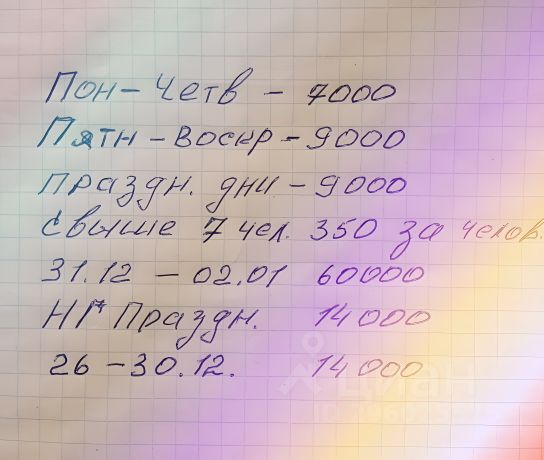 Пон - Четв - 7000
Пятн - Воскр - 9000
Праздн. дни - 9000
Свыше 7 чел. 350 за челов.
31.12 - 02.01 60000
НГ Праздн. 14000
26 - 30.12. 14000
циан